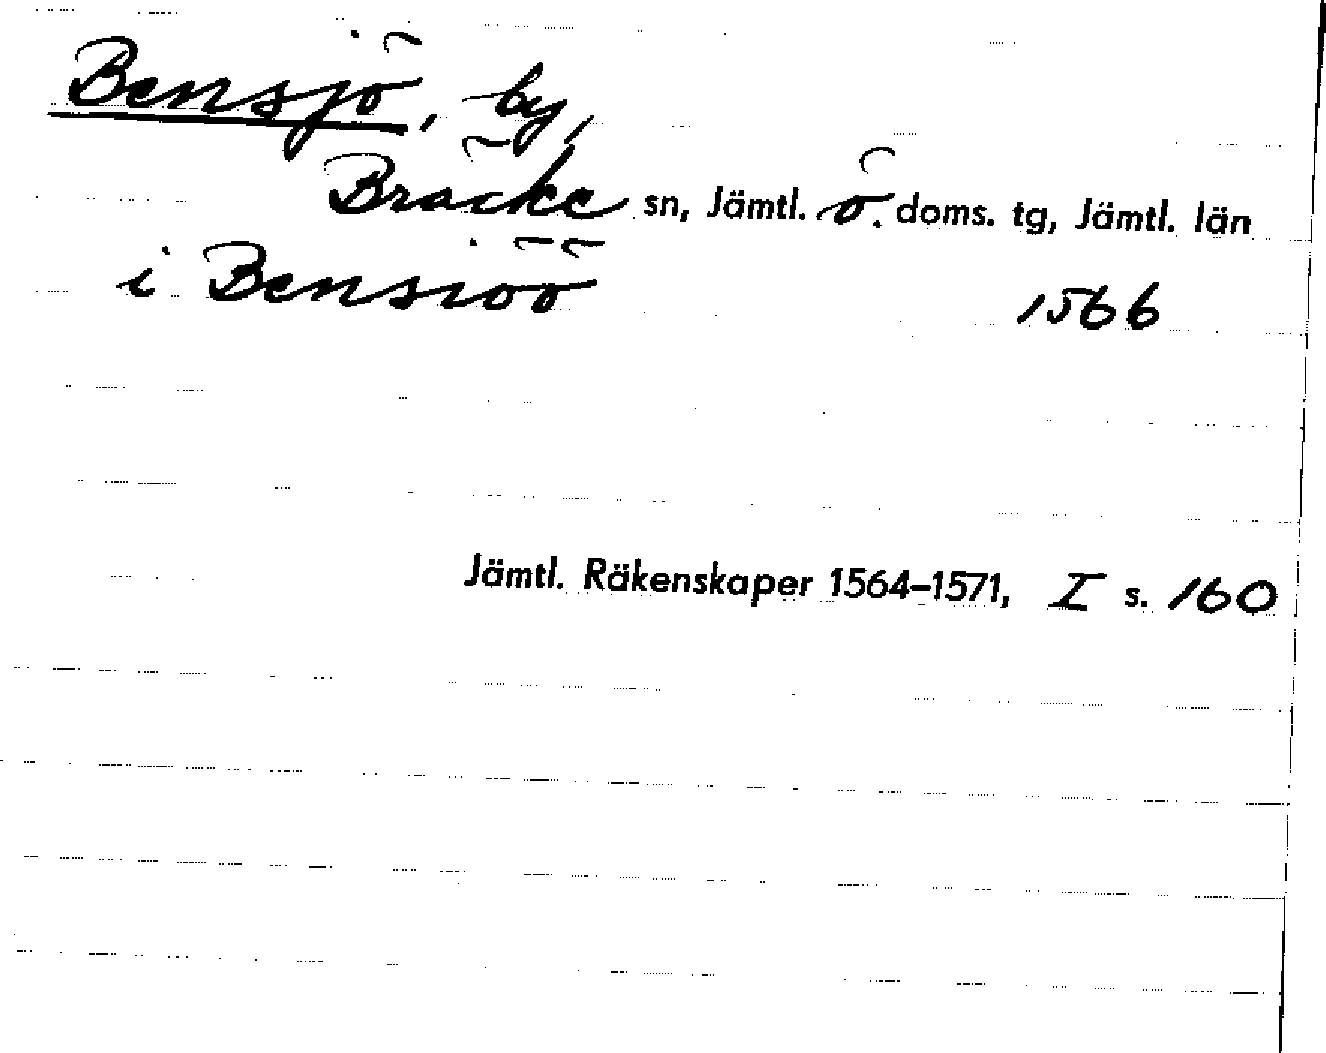 Bensjö, by,
Bräcke sn, Jämtl. ö. doms. tg, Jämtl. län
i Bensiöö 1566
Jämtl. Räkenskaper 1564–1571, I s. 160